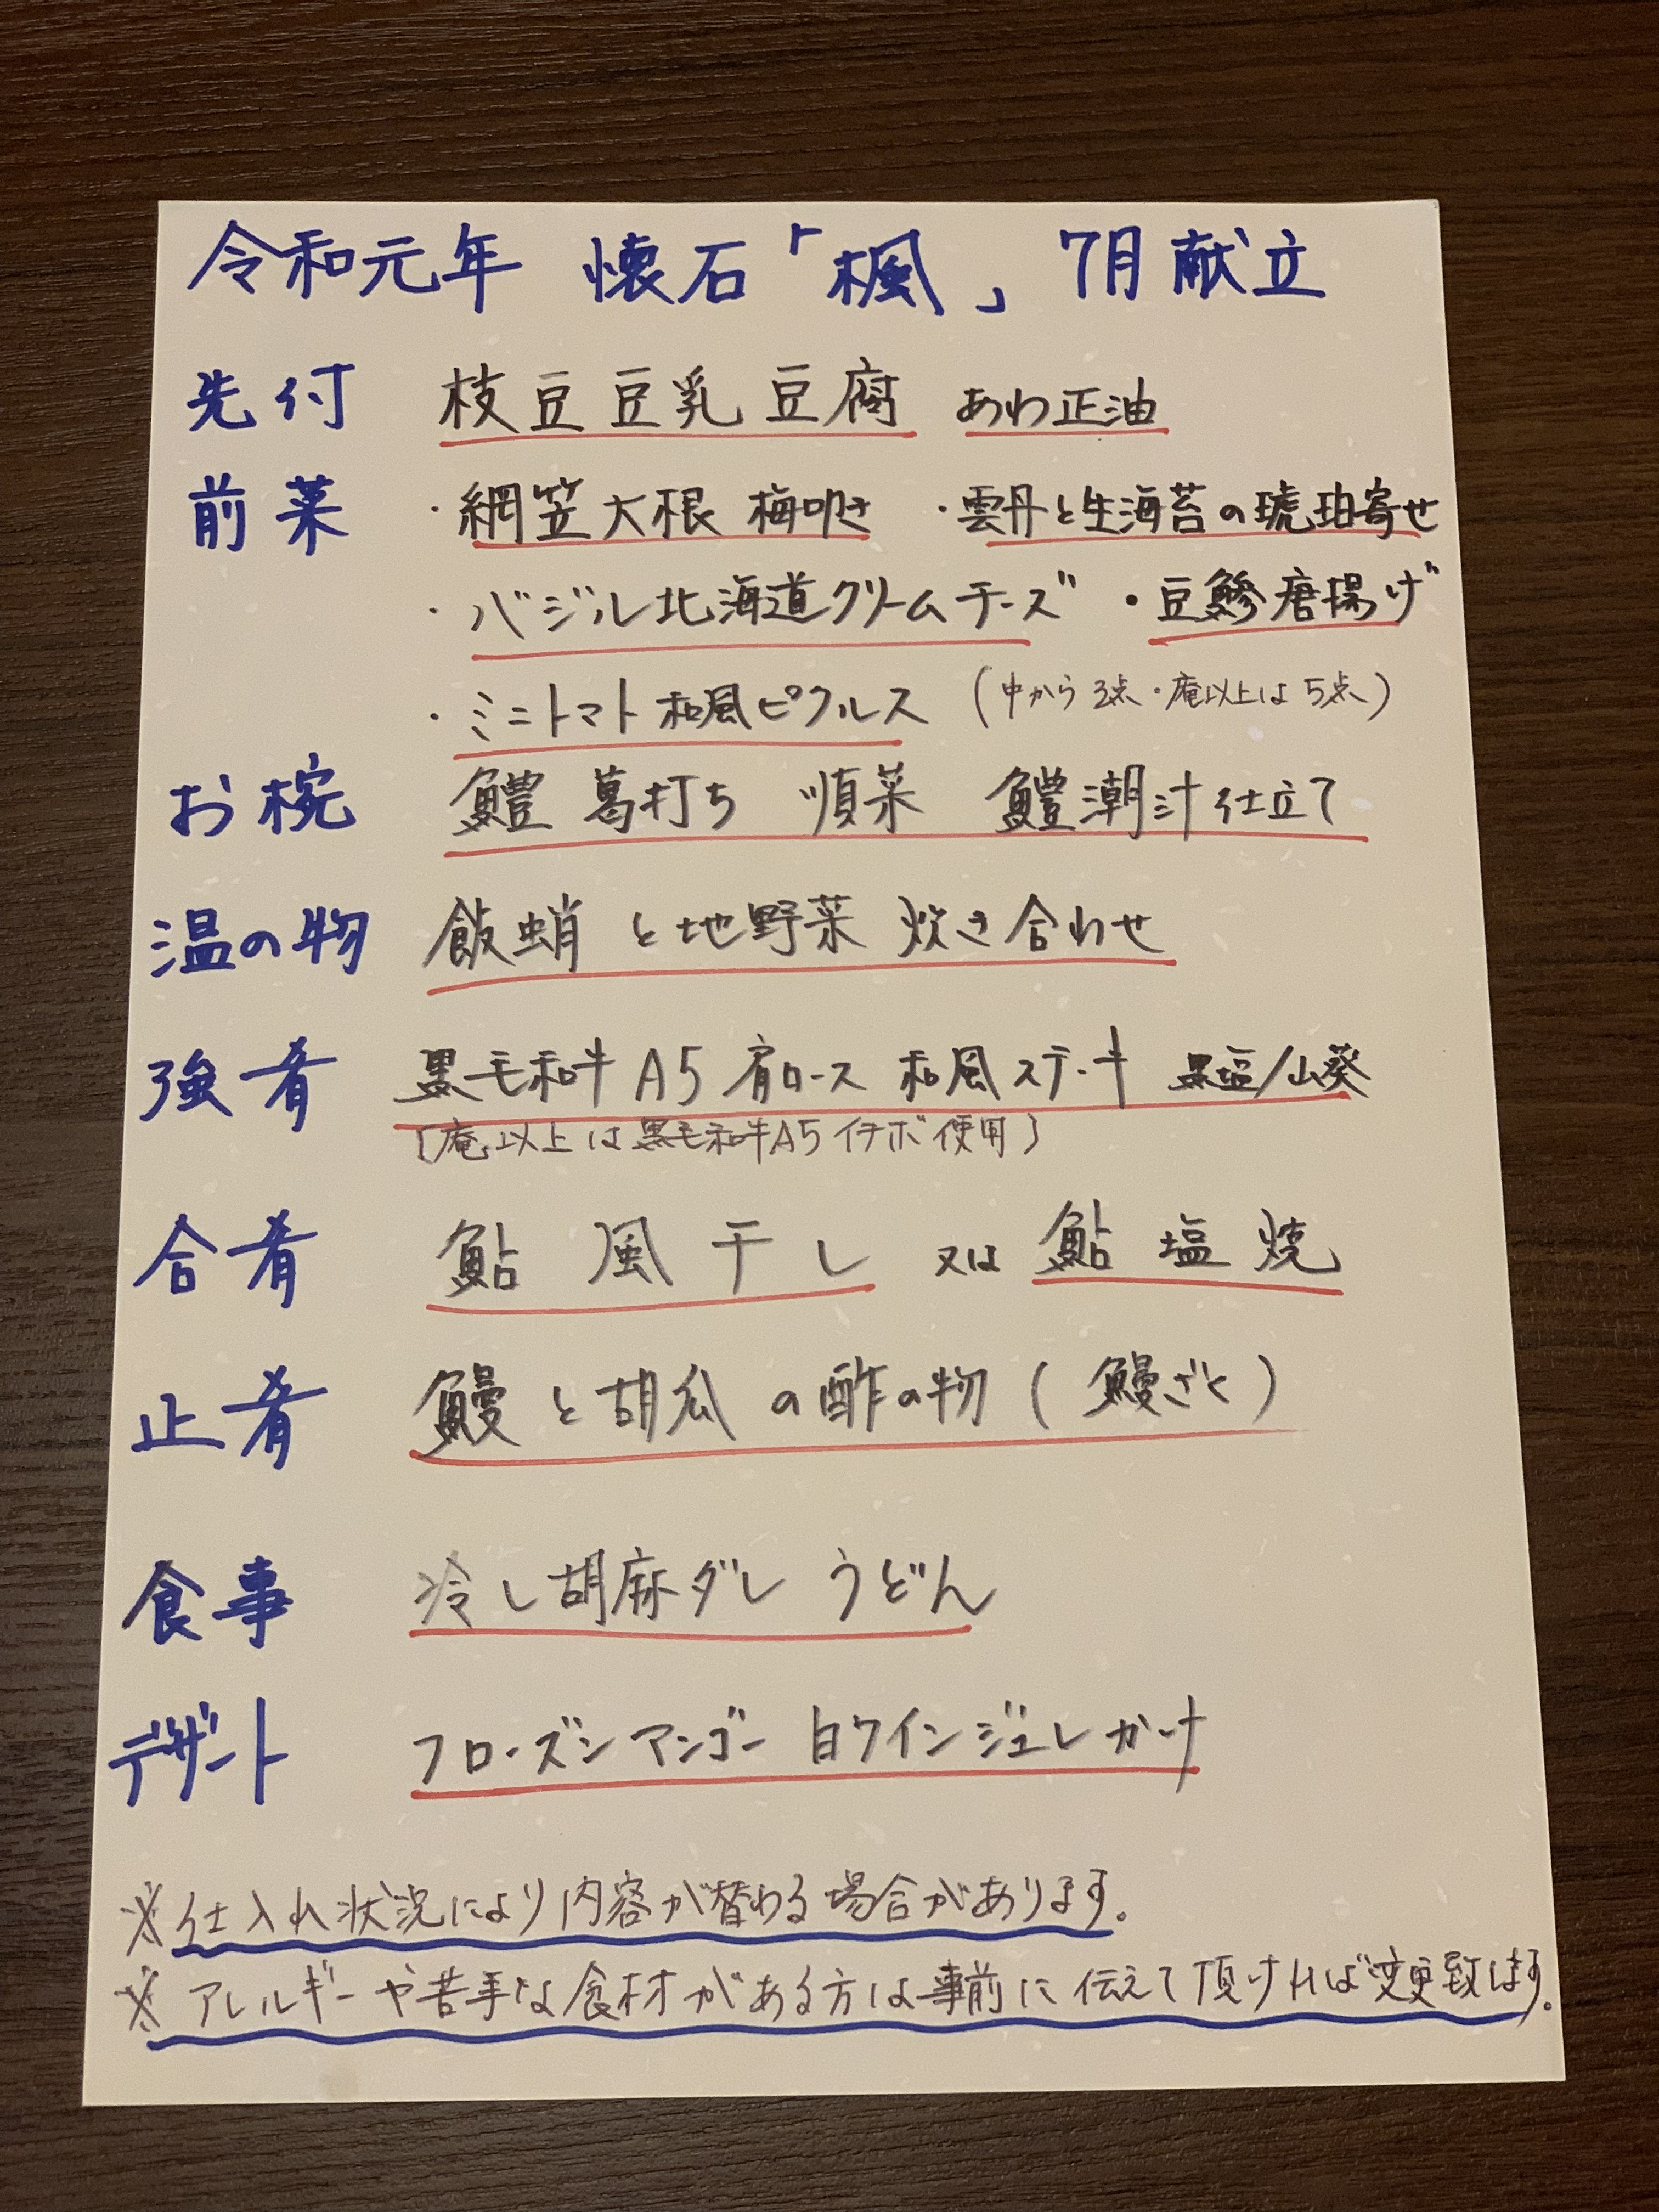 令和元年 懐石「楓」 7月献立
先付 枝豆豆乳豆腐 あわ正油
前菜 ・網笠大根 梅呼き ・雲丹と生海苔の琥珀寄せ
・バジル北海道クリームチーズ ・豆鯵唐揚げ
・ミニトマト和風ピクルス (中から3点・庵以上は5点)
お椀 鱧 葛打ち 順菜 鱧潮汁仕立て
温の物 飯蛸と地野菜 炊き合わせ
強肴 黒毛和牛A5肩ロース 和風ステーキ 黒塩/山葵
(庵以上は黒毛和牛A5イチボ使用)
合肴 鮎 風干し 又は 鮎塩焼
止肴 鰻と胡瓜の酢の物(鰻ざく)
食事 冷し胡麻ダレうどん
デザート フローズンマンゴー 白ワインジュレかけ
※仕入れ状況により内容が替わる場合があります。
※アレルギーや苦手な食材がある方は事前に伝えて頂ければ変更致します。